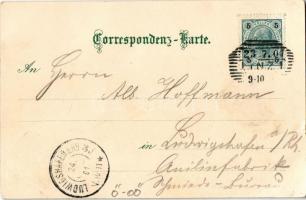 Correspondenz-Karte.
5 5
LINZ
9-10
An Herrn
Alb. Hoffmann
in Ludwigshafen a/Rh.
Anilinfabrik
LUDWIGSHAFEN
Ö-OÖ